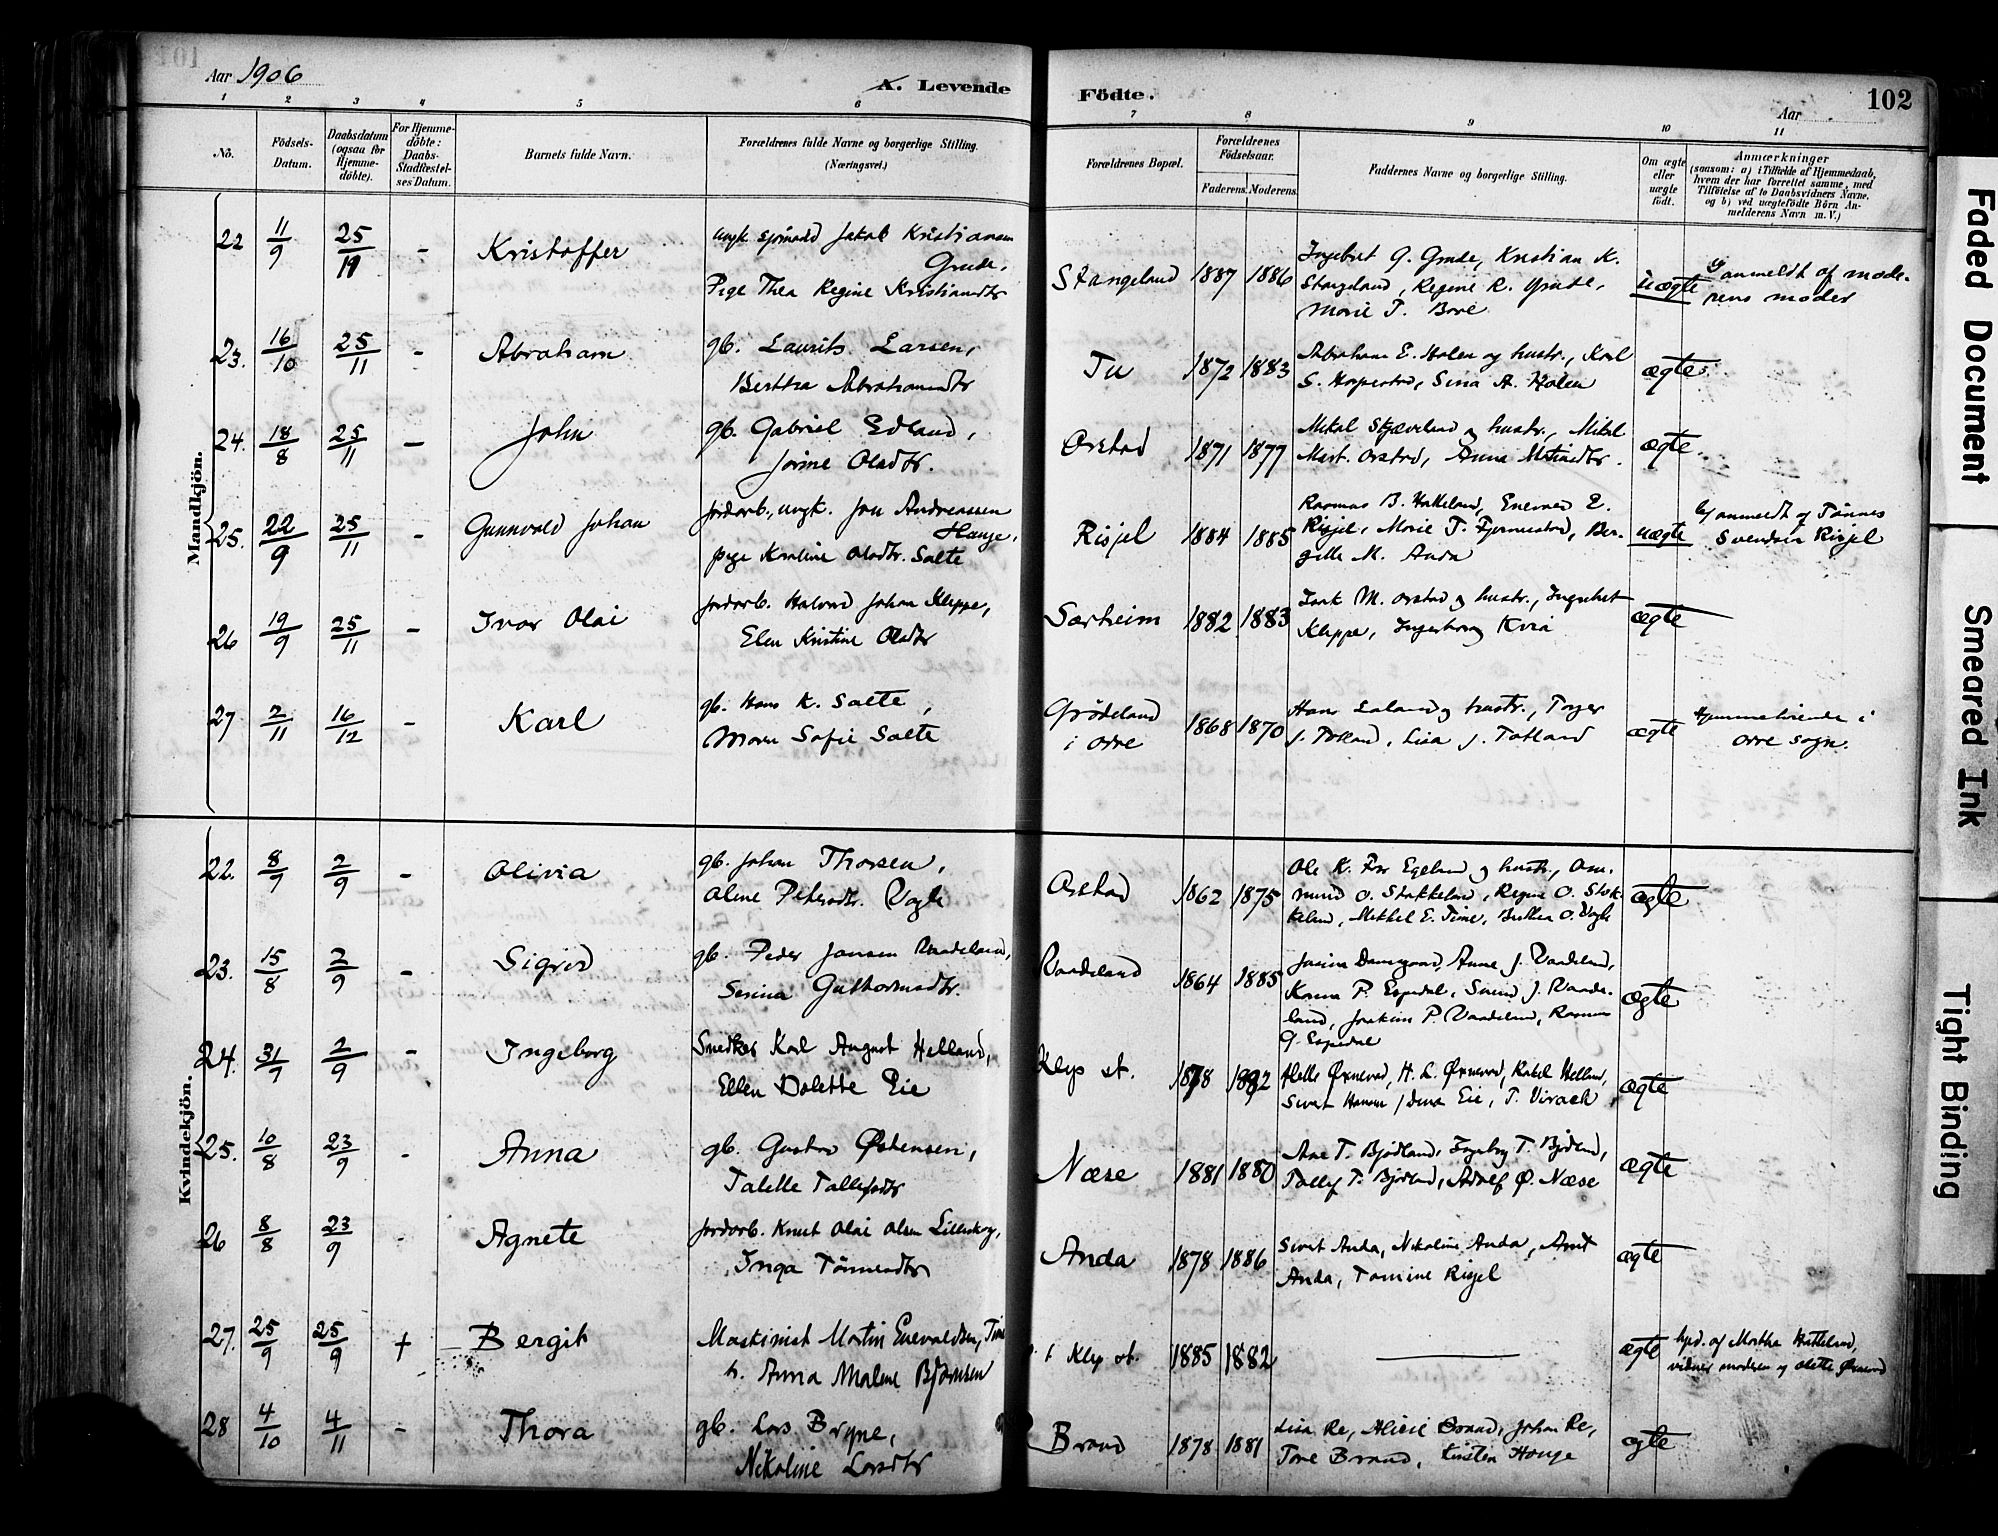 101
Aar 1906
A. Levende Födte.
Aar
102
1 2 3 4 5 6 7 8 9 10 11
No.
Födsels-Datum.
Daabsdatum (ogsaa for Hjemme-döbte).
For Hjemme-döbte: Daabs-Stadfæstel-ses Datum.
Barnets fulde Navn.
Forældrenes fulde Navne og borgerlige Stilling. (Næringsvei.)
Forældrenes Bopæl.
Forældrenes Födselsaar.
Faderens. Moderens.
Faddernes Navne og borgerlige Stilling.
Om ægte eller uægte födt.
Anmærkninger
(saasom: a) i Tilfælde af Hjemmedaab,
hvem der har forrettet samme, med
Tilföielse af to Daabsvidners Navne,
og b) ved uægtefödte Börn An-
melderens Navn m. V.)
Mandkjön.
22 11/9 25/19 - Kristoffer
ungk. sjömand Jakob Kristiansen
Grude,
Pige Thea Regine Kristiansdtr
Stangeland 1887 1886
Ingebret G. Grude, Kristian K.
Stangeland, Regine R. Grude,
Marie T. Bore
uægte
anmeldt af mode-
rens moder
23. 16/10 25/11 - Abraham
gb. Laurits Larsen,
Bertha Abrahamsdtr
Tu 1872 1883
Abraham E. Holen og hustr., Karl
S. Haapestad, Sina A. Holen
ægte.
24. 18/8 25/11 - John
gb. Gabriel Edland,
Jorine Olsdtr.
Orstad 1871 1877
Mikal Skjæveland og hustr., Mikal
Mart. Orstad, Anna
ægte.
25. 22/9 25/11 - Gunnvald Johan
jordarb., ungk. Jon Andreassen
Hauge,
pige Karline Olsdtr. Salte
Risjel 1884 1885
Rasmus B. Hakeland, Enevald E.
Risjel, Marie T. Fjermestad, Ber-
gitte M. Anda
uægte
b) anmeldt af Tønnes
Svendsen Risjel
26 19/9 25/11 - Ivar Olai
jordarb. Halvard Johan Kleppe,
Elen Kristine Olsdtr
Sørheim 1882 1883
Isak M. Orstad og hustr., Ingebret
Kleppe, Ingeborg Kvia
ægte
27 2/11 16/12 - Karl
gb. Hans K. Salte,
Maren Sofie Salte
Grödeland
i Orre
1868 1870
Hans Laland og hustr., Torger
J. Totland, Lisa J. Totland
ægte
Hjemmehørende i
Orre sogn.
Kvindekjön.
22. 8/9 2/9 - Olivia
gb. Johan Thorsen,
Oline Petersdtr. Vagle
Orstad 1862 1875
Ole K. Fos Egeland og hustr., Os-
mund O. Stokkeland, Regine O. Stok-
keland, Mikkel E. Time, Bertha O. Vagle
ægte
23. 15/8 2/9 - Sigrid
gb. Peder Jonsen Vaadeland,
Serina Guttormsdtr.
Vaadeland 1864 1885
Josine Damsgaard, Anne J. Vaadeland,
Karen P. Espedal, Svend J. Vaade-
land, Joakim P. Vaadeland, Rasmus
G. Espedal
ægte
24. 31/7 2/9 - Ingeborg
Snedker Karl August Helland,
Ellen Dolette Eie
Klep st. 1878 1882
Helle Øxnevad, H. L. Øxnevad, Rakel Helland,
Sivert Hansen, JDena Eie, T. Virack
ægte
25. 10/8 23/9 - Anna
gb. Gustav Østensen,
Talette Tallefsdtr
Næse 1881 1880
Ane T. Bjödland, Ingeborg T. Bjödland,
Tallef T. Bjödland, Adolf Ø. Næse
ægte
26 8/8 23/9 - Agnete
jordarb. Knut Olai Olsen Lilleskog,
Inga Tönnesdtr
Anda 1878 1886
Sivert Anda, Nikoline Anda, Arnt
Anda, Tomine Risjel
ægte
27. 25/9 25/9 + Bergit
Maskinist Martin Enevaldsen, Time
h. Anna Malene Bjørnsen
Klep st. 1885 1882
ægte
hjd. af Martha Hatteland,
vidner moderen og Olette Øxnevad
28 4/10 4/11 - Thora
gb. Lars Bryne,
Nikoline Larsdtr
Braud 1878 1881
Lisa Re, Braud, Johan Re,
Tore Braud, Kirsten Hauge
ægte
Faded Document
Smeared Ink
Tight Binding